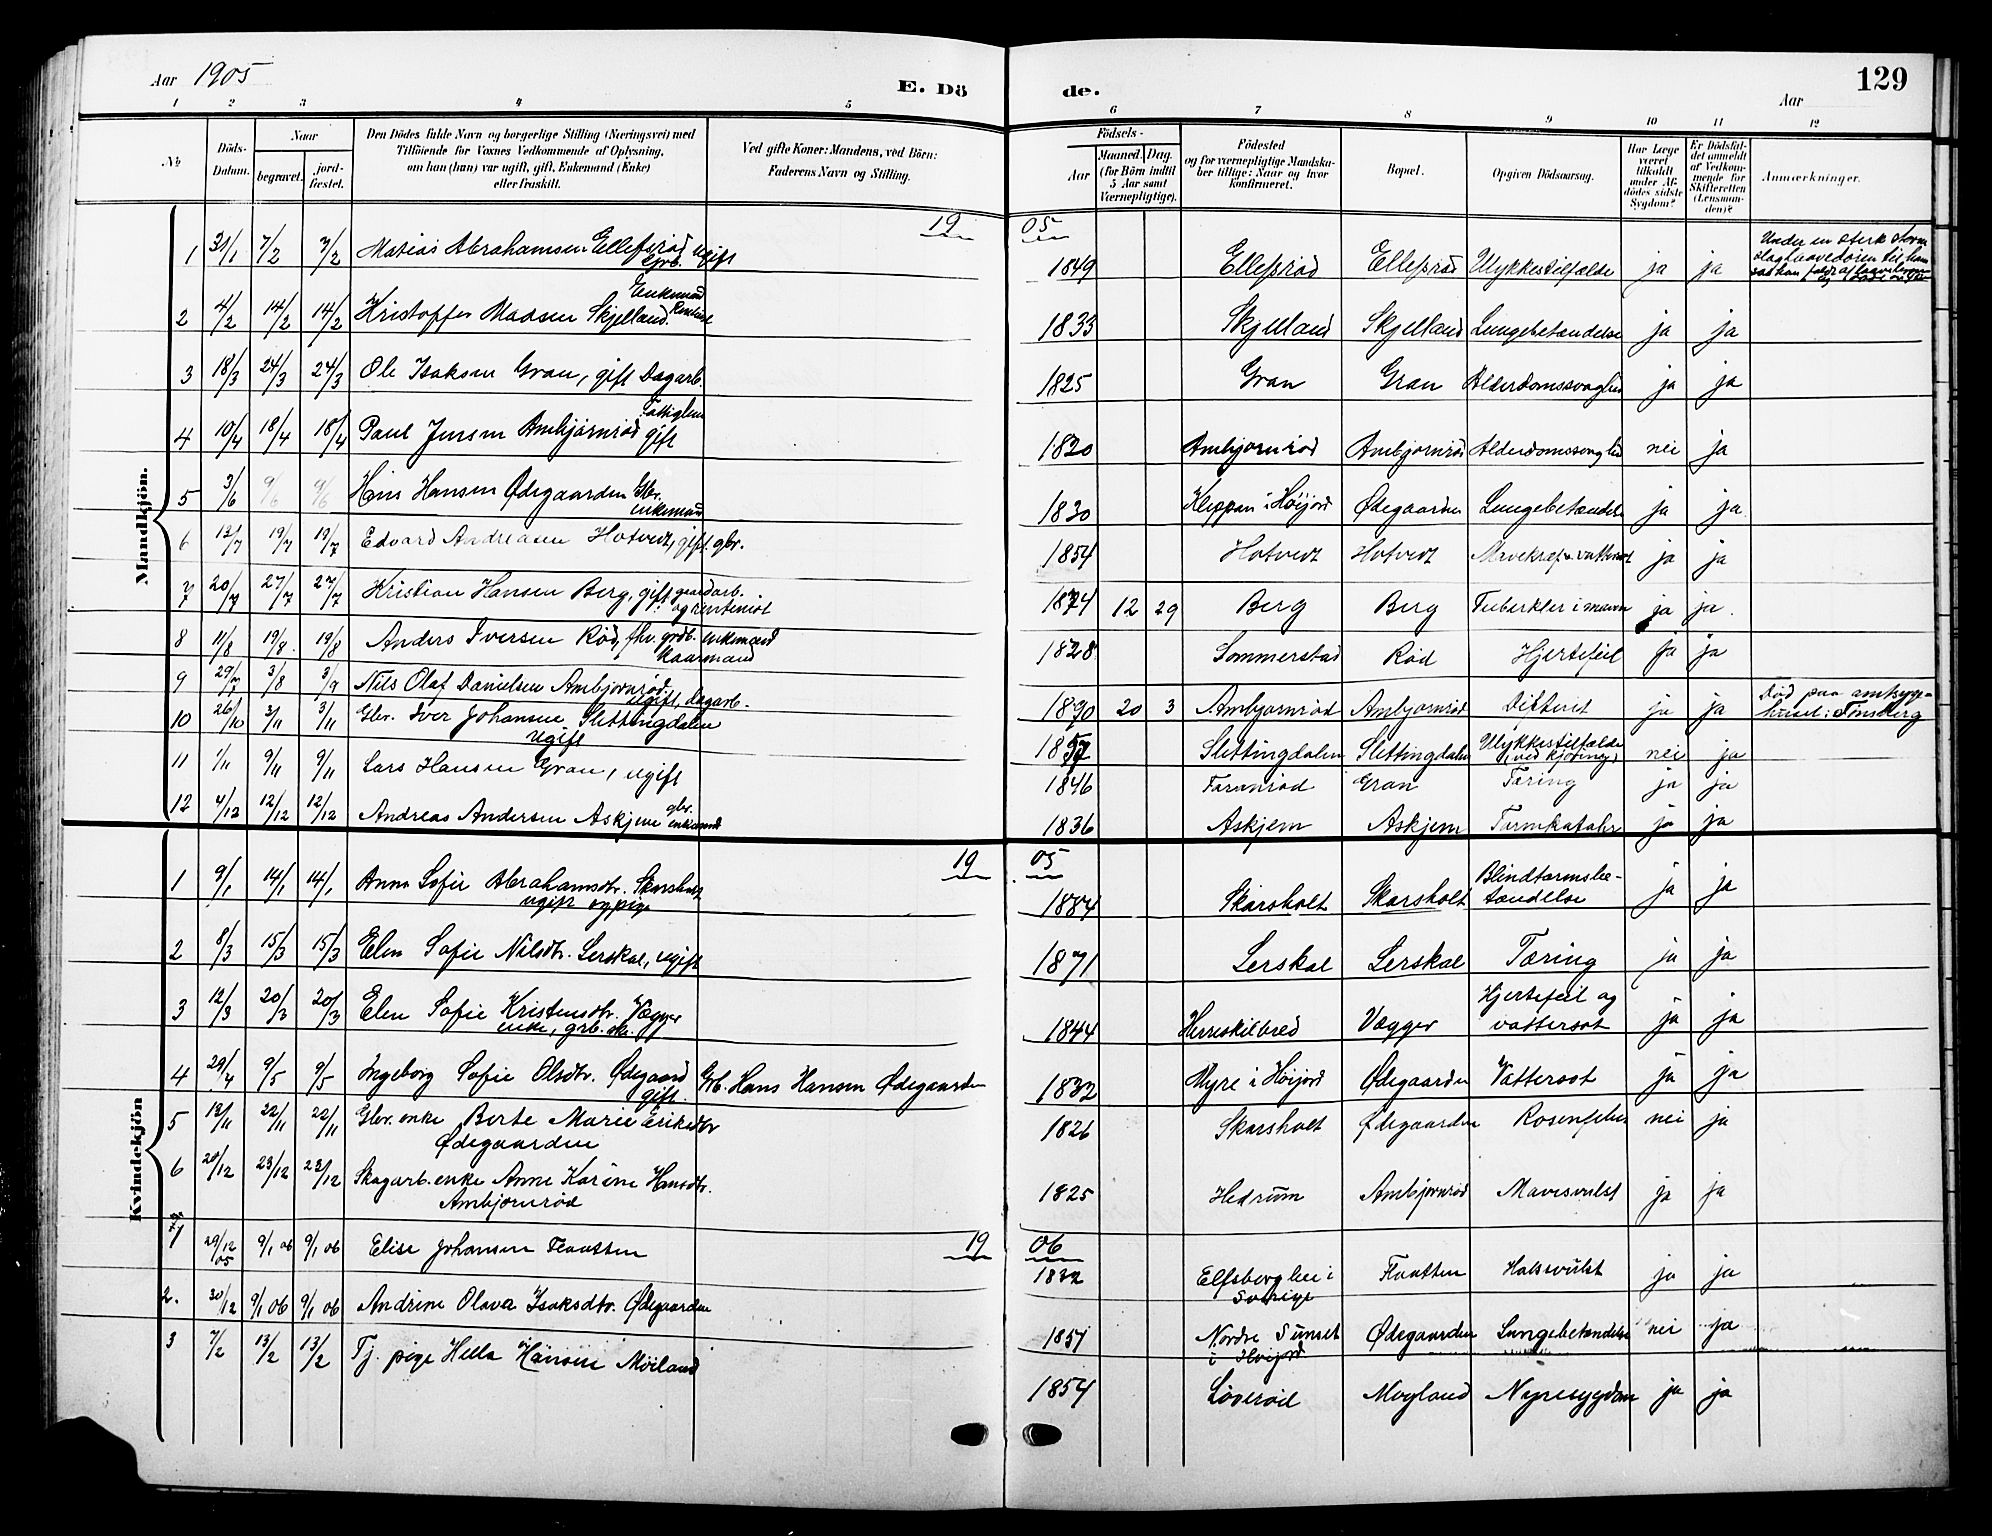 Aar 1905
E. Dö
de.
Aar
129
1 2 3 4 5
6 7 8 9 10 11 12
№
Döds-Datum.
Naar
begravet.
jord-fæstet.
Den Dödes fulde Navn og borgerlige Stilling (Næringsvei) med
Tilföiende for Voxnes Vedkommende af Oplysning,
om han (hun) var ugift, gift, Enkemand (Enke)
eller fraskilt.
Ved gifte Koner: Mandens, ved Börn:
Faderens Navn og Stilling.
Födsels-
Aar
Maaned.
Dag.
(for Börn indtil
5 Aar samt
Værnepligtige).
Födested
og for værnepligtige Mandska-
ber tillige: Naar og hvor
konfirmeret.
Bopæl.
Opgiven Dödsaarsag.
Har Læge
været
tilkaldt
under Af-
dödes sidste
Sygdom?
Er Dödsfal-
det anmeldt
af Vedkom-
mende for
Skifteretten
(Lensman-
den)?
Anmærkninger.
Mandkjön.
19 05
1 31/1 7/2 7/2 Matias Abrahamsen Ellefsrød ugift 1849 Ellefsrød Ellefsrød Ulykkestilfælde ja ja Under en sterk Storm
2 4/2 14/2 14/2 Kristoffer Madsen Skjelland. Enkemand 1833 Skjelland Skjelland Lungebetændelse ja ja
3 18/3 24/3 24/3 Ole Isaksen Gran, gift Dagarb. 1825 Gran Gran Alderdomssvaghed ja ja
4 10/4 18/4 18/4 Paul Jensen Ambjørnrød gift 1820 Ambjørnrød Ambjørnrød Alderdomssvaghed nei ja
5 3/6 9/6 9/6 Hans Hansen Ødegaarden Gbr. enkemand 1830 Kleppan i Høijord Ødegaarden Lungebetændelse ja ja
6 13/7 19/7 19/7 Edvard Andreasen Hotvedt, gift. gbr. 1854 Hotvedt Hotvedt ja ja
7 20/7 27/7 27/7 Kristian Hansen Berg, gift gaardarb. 1874 12 29 Berg Berg Tuberkler i maven ja ja.
8 11/8 19/8 19/8 Anders Iversen Rød, fhv. grdb. enkemand
Kaarmand 1828 Sommerstad Rød Hjertefeil ja ja
9 29/7 3/8 3/9 Nils Olaf Danielsen Ambjørnrød
ugift, Dagarb. 1890 20 3 Ambjørnrød Ambjørnrød Difterit ja ja Død paa amtsyge-
huset i Tønsberg
10 26/10 3/11 3/11 Gbr. Iver Johansen Slettingdalen
Ugift Slettingdalen Slettingdalen Ulykkestilfælde
(ved kjøring) nei ja
11 1/11 9/11 9/11 Lars Hansen Gran, ugift 1846 Gran Tæring ja ja
12 4/12 12/12 12/12 Andreas Andersen Askjem gbr.
enkemand 1836 Askjem Askjem Tarmkatahr ja ja
Kvindekjön
19 05
1 9/1 14/1 14/1 Anna Sofie Abrahamsdtr. Skarsholt
ugift og pige 1884 Skarsholt Skarsholt Blindtarmsbe-
tændelse ja ja
2 8/3 15/3 15/3 Elen Sofie Nilsdtr. Lerskal, ugift 1871 Lerskal Lerskal Tæring ja ja
3 12/3 20/3 20/3 Elen Sofie Kristensdtr. Vægger
enke, grb. 1844 Herreskilbred Vægger Hjertefeil og
vattersot ja ja
4 29/4 9/5 9/5 Ingeborg Sofie Olsdtr. Ødegaard
gift. Grb. Hans Hansen Ødegaarden 1832 Myre i Høijord Ødegaarden Vattersot ja ja
5 13/11 22/11 22/11 Gbr. enke Berte Marie Eriksdtr
Ødegaarden 1826 Skarsholt Ødegaarden Rosenfeber nei ja
6 20/12 23/12 23/12 Skogarb. enke Anne Karine Hansdtr.
Ambjørnrød 1825 Hedrum Ambjørnrød Mavesvulst ja ja
19 06
1 29/12 05 9/1 06 9/1 06 Elise Johansen Flaatten 1832 Elfsborg len i
Sverige Flaatten Halssvulst ja ja
2. 30/12 9/1 06 9/1 06 Andrine Olava Isaksdtr. Ødegaarden 1851 Nordre Sunset
i Høijord Ødegaarden Lungebetændelse nei ja
3 7/2 13/2 13/2 Tj. pige Hella Hansen Møiland 1854 Løverød Moyland Nyresygdom ja ja